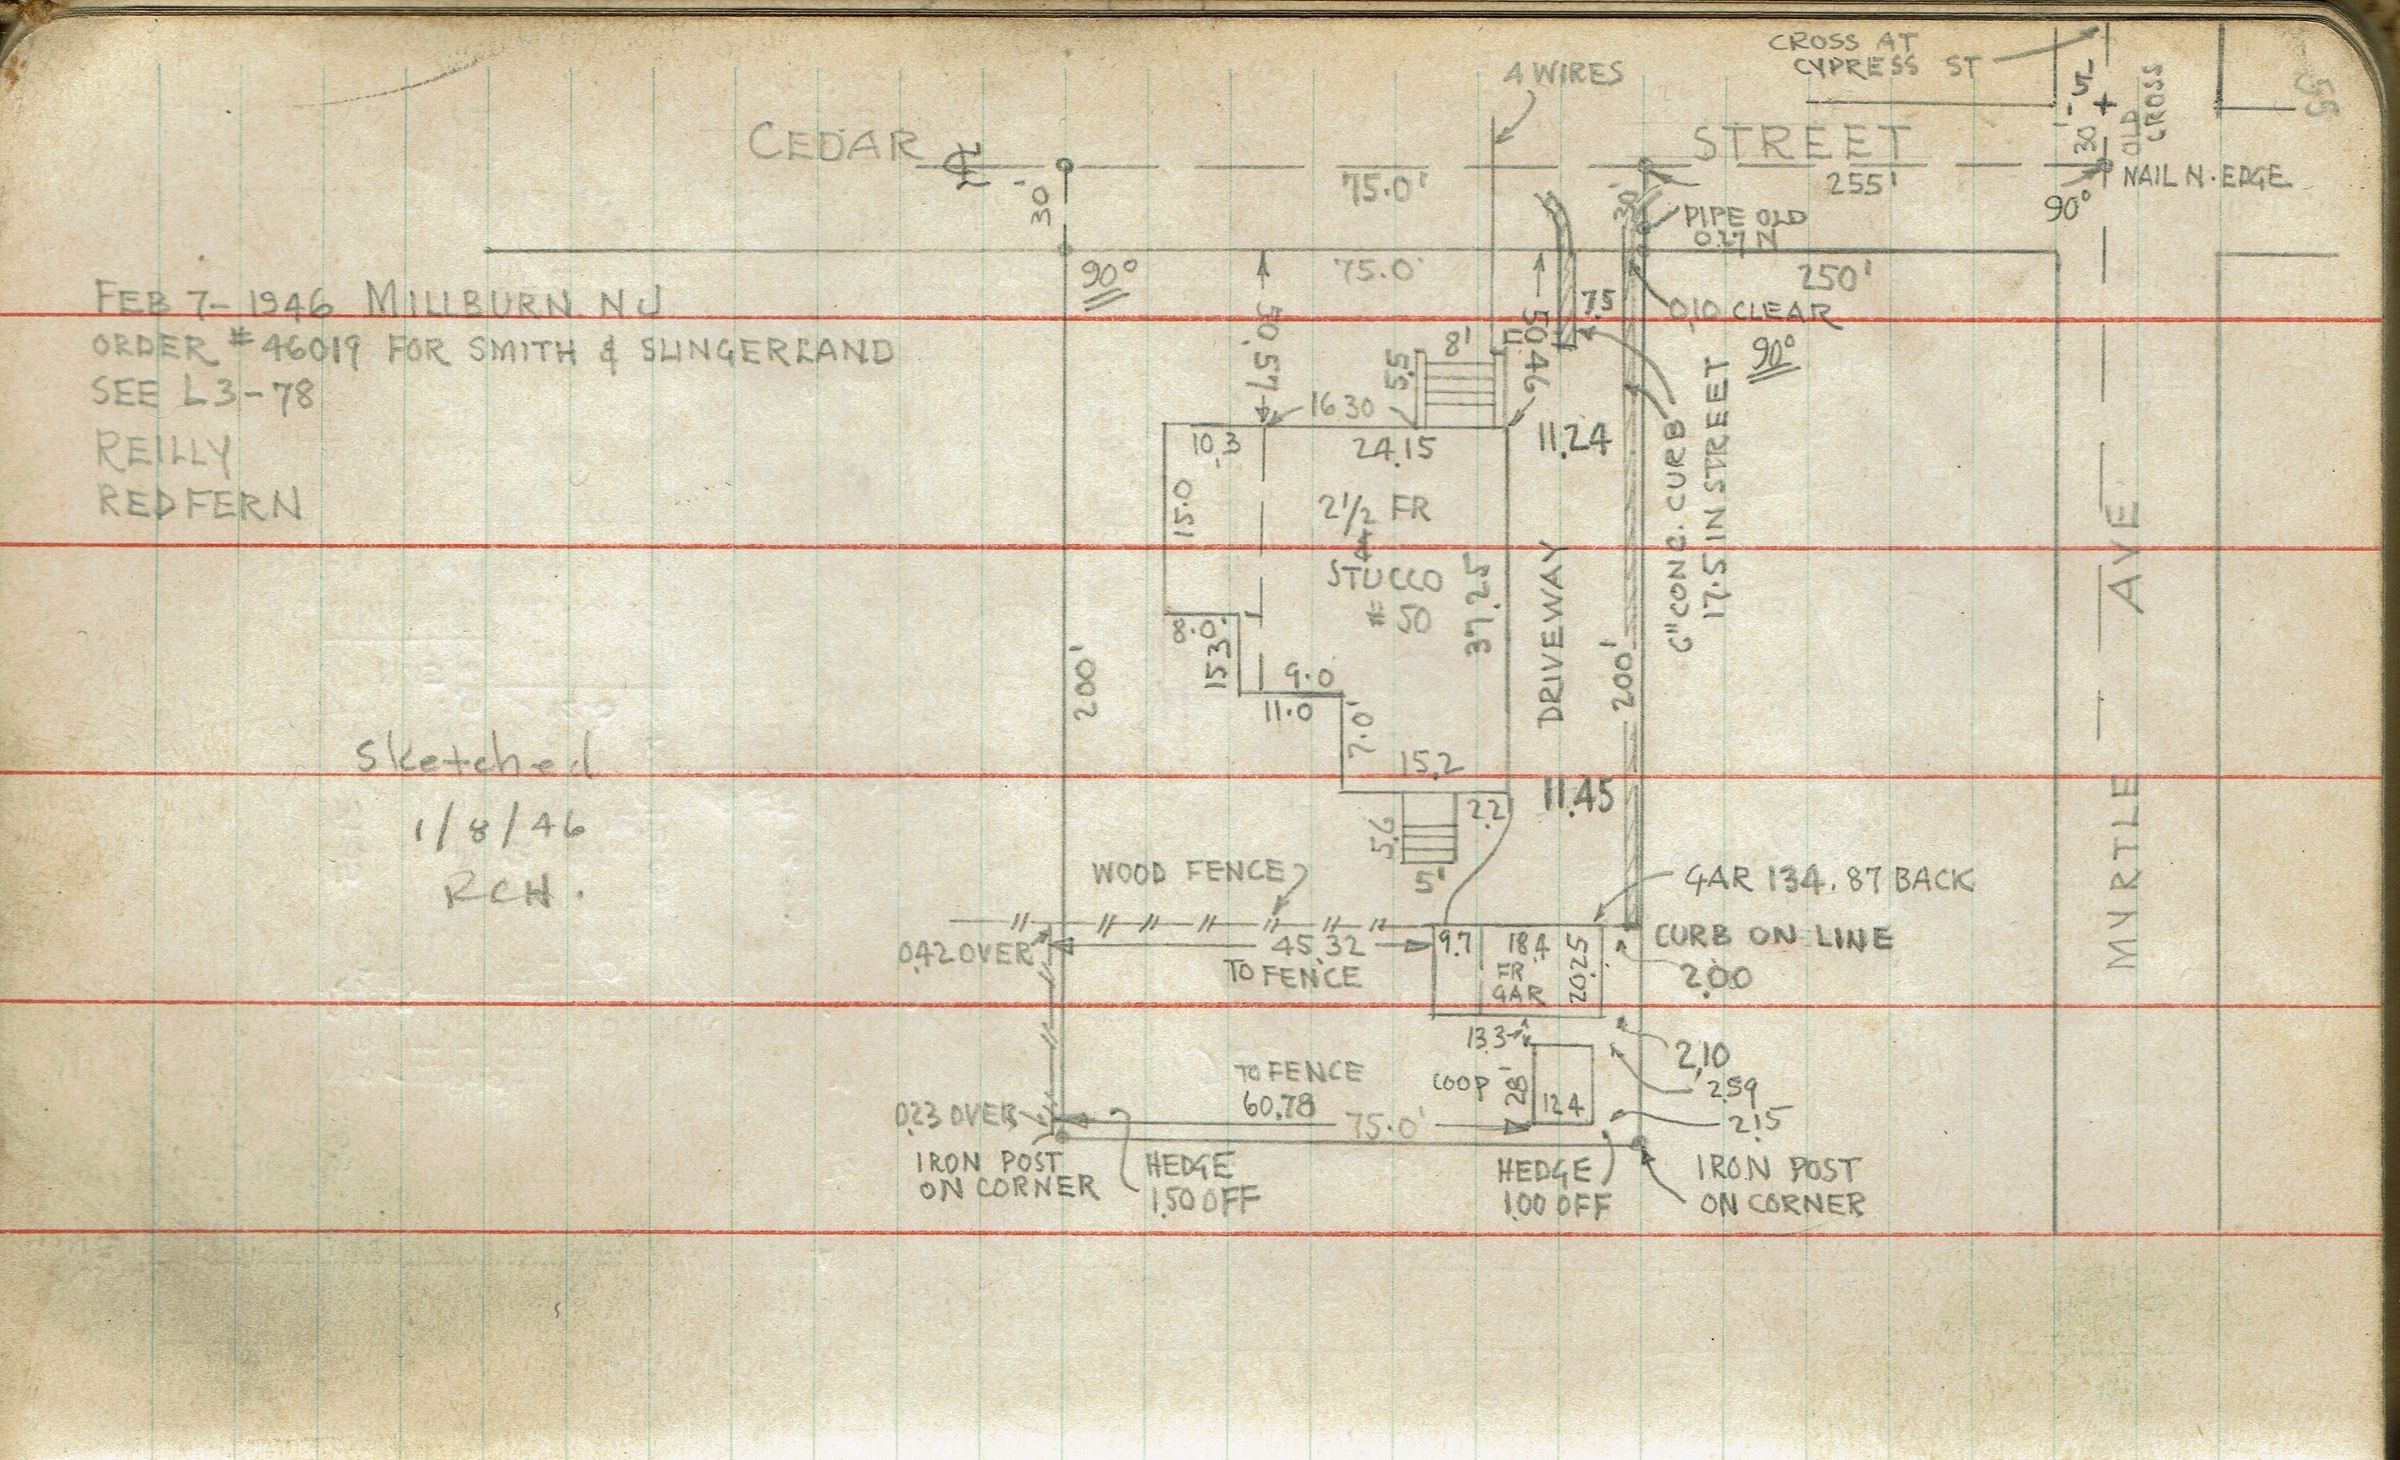 CROSS AT
CYPRESS ST
4 WIRES
5
OLD
CROSS
55
CEDAR
STREET
30'
30'
75.0'
30'
255'
NAIL N. EDGE
90°
PIPE OLD
0.27 N
90°
75.0'
250'
FEB 7-1946 MILLBURN NJ
ORDER #46019 FOR SMITH & SLINGERLAND
SEE L3-78
REILLY
REDFERN
50.57
50.46
7.5
0.10 CLEAR
90°
8'
5.5
16.30
10.3
24.15
11.24
6" CONC. CURB
17.5 IN STREET
15.0
2 1/2 FR
STUCCO
#50
37.25
DRIVEWAY
MYRTLE AVE
8.0
15.30
9.0
11.0
200'
200'
7.0'
15.2
11.45
2.2
5.6
5'
Sketched
1/8/46
RCH.
WOOD FENCE
GAR 134.87 BACK
0.42 OVER
45.32
TO FENCE
9.7
18.4
FR
GAR
20.25
CURB ON LINE
2.00
13.3
2.10
TO FENCE
60.78
COOP
12.4
2.59
2.15
0.23 OVER
75.0'
IRON POST
ON CORNER
HEDGE
1.50 OFF
HEDGE
1.00 OFF
IRON POST
ON CORNER